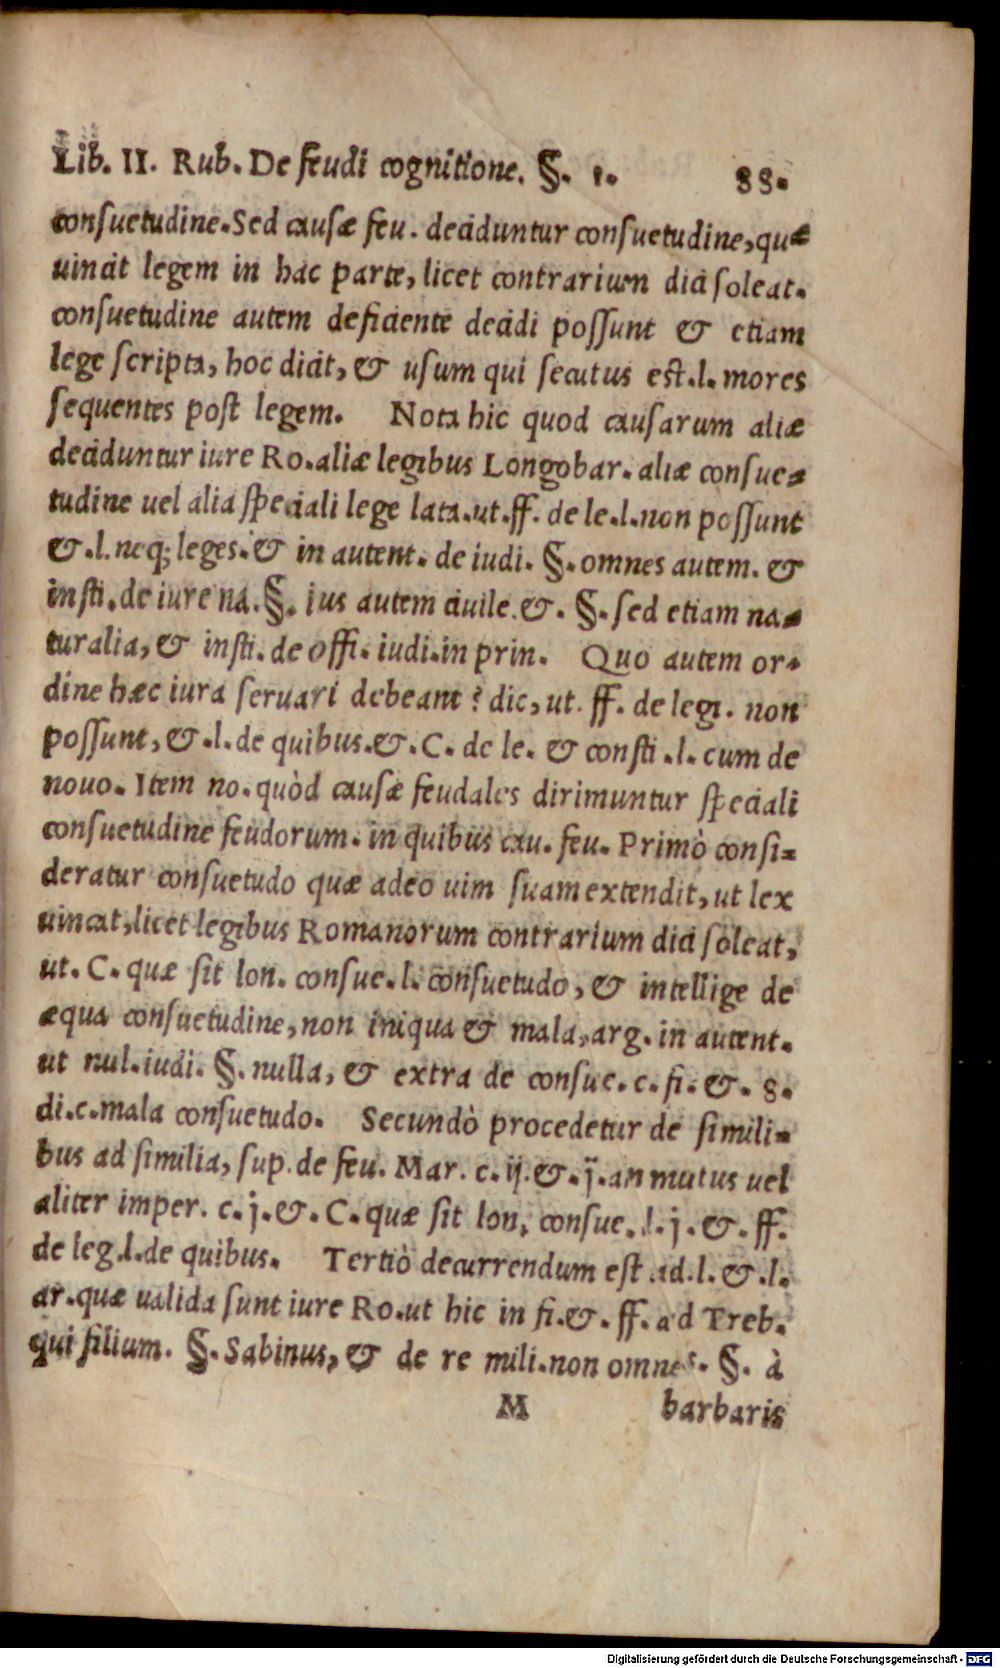 Lib. II. Rub. De feudi cognitione. §. 1. 88.
consuetudine. Sed causæ feu. deciduntur consuetudine, quæ
uincit legem in hac parte, licet contrarium dici soleat.
consuetudine autem deficiente decidi possunt & etiam
lege scripta, hoc dicit, & usum qui secutus est. l. mores
sequentes post legem. Nota hic quod causarum aliæ
deciduntur iure Ro. aliæ legibus Longobar. aliæ consue-
tudine uel alia speciali lege lata. ut. ff. de le. l. non possunt
&. l. neq; leges. & in autent. de iudi. §. omnes autem. &
insti. de iure na. §. ius autem ciuile. &. §. sed etiam na-
turalia, & insti. de offi. iudi. in prin. Quo autem or-
dine hæc iura seruari debeant? dic, ut. ff. de legi. non
possunt, &. l. de quibus. &. C. de le. & consti. l. cum de
nouo. Item no. quòd causæ feudales dirimuntur speciali
consuetudine feudorum. in quibus cau. feu. Primò consi-
deratur consuetudo quæ adeo uim suam extendit, ut lex
uincat, licet legibus Romanorum contrarium dici soleat,
ut. C. quæ sit lon. consue. l. consuetudo, & intellige de
æqua consuetudine, non iniqua & mala, arg. in autent.
ut nul. iudi. §. nulla, & extra de consue. c. fi. &. 8.
di. c. mala consuetudo. Secundò procedetur de simili-
bus ad similia, sup. de feu. Mar. c. ij. &. j. an mutus uel
aliter imper. c. j. &. C. quæ sit lon. consue. l. j. &. ff.
de leg. l. de quibus. Tertiò decurrendum est ad. l. &. l.
ar. quæ ualida sunt iure Ro. ut hic in fi. &. ff. ad Treb.
qui filium. §. Sabinus, & de re mili. non omnes. §. à
M barbaris
Digitalisierung gefördert durch die Deutsche Forschungsgemeinschaft - DFG